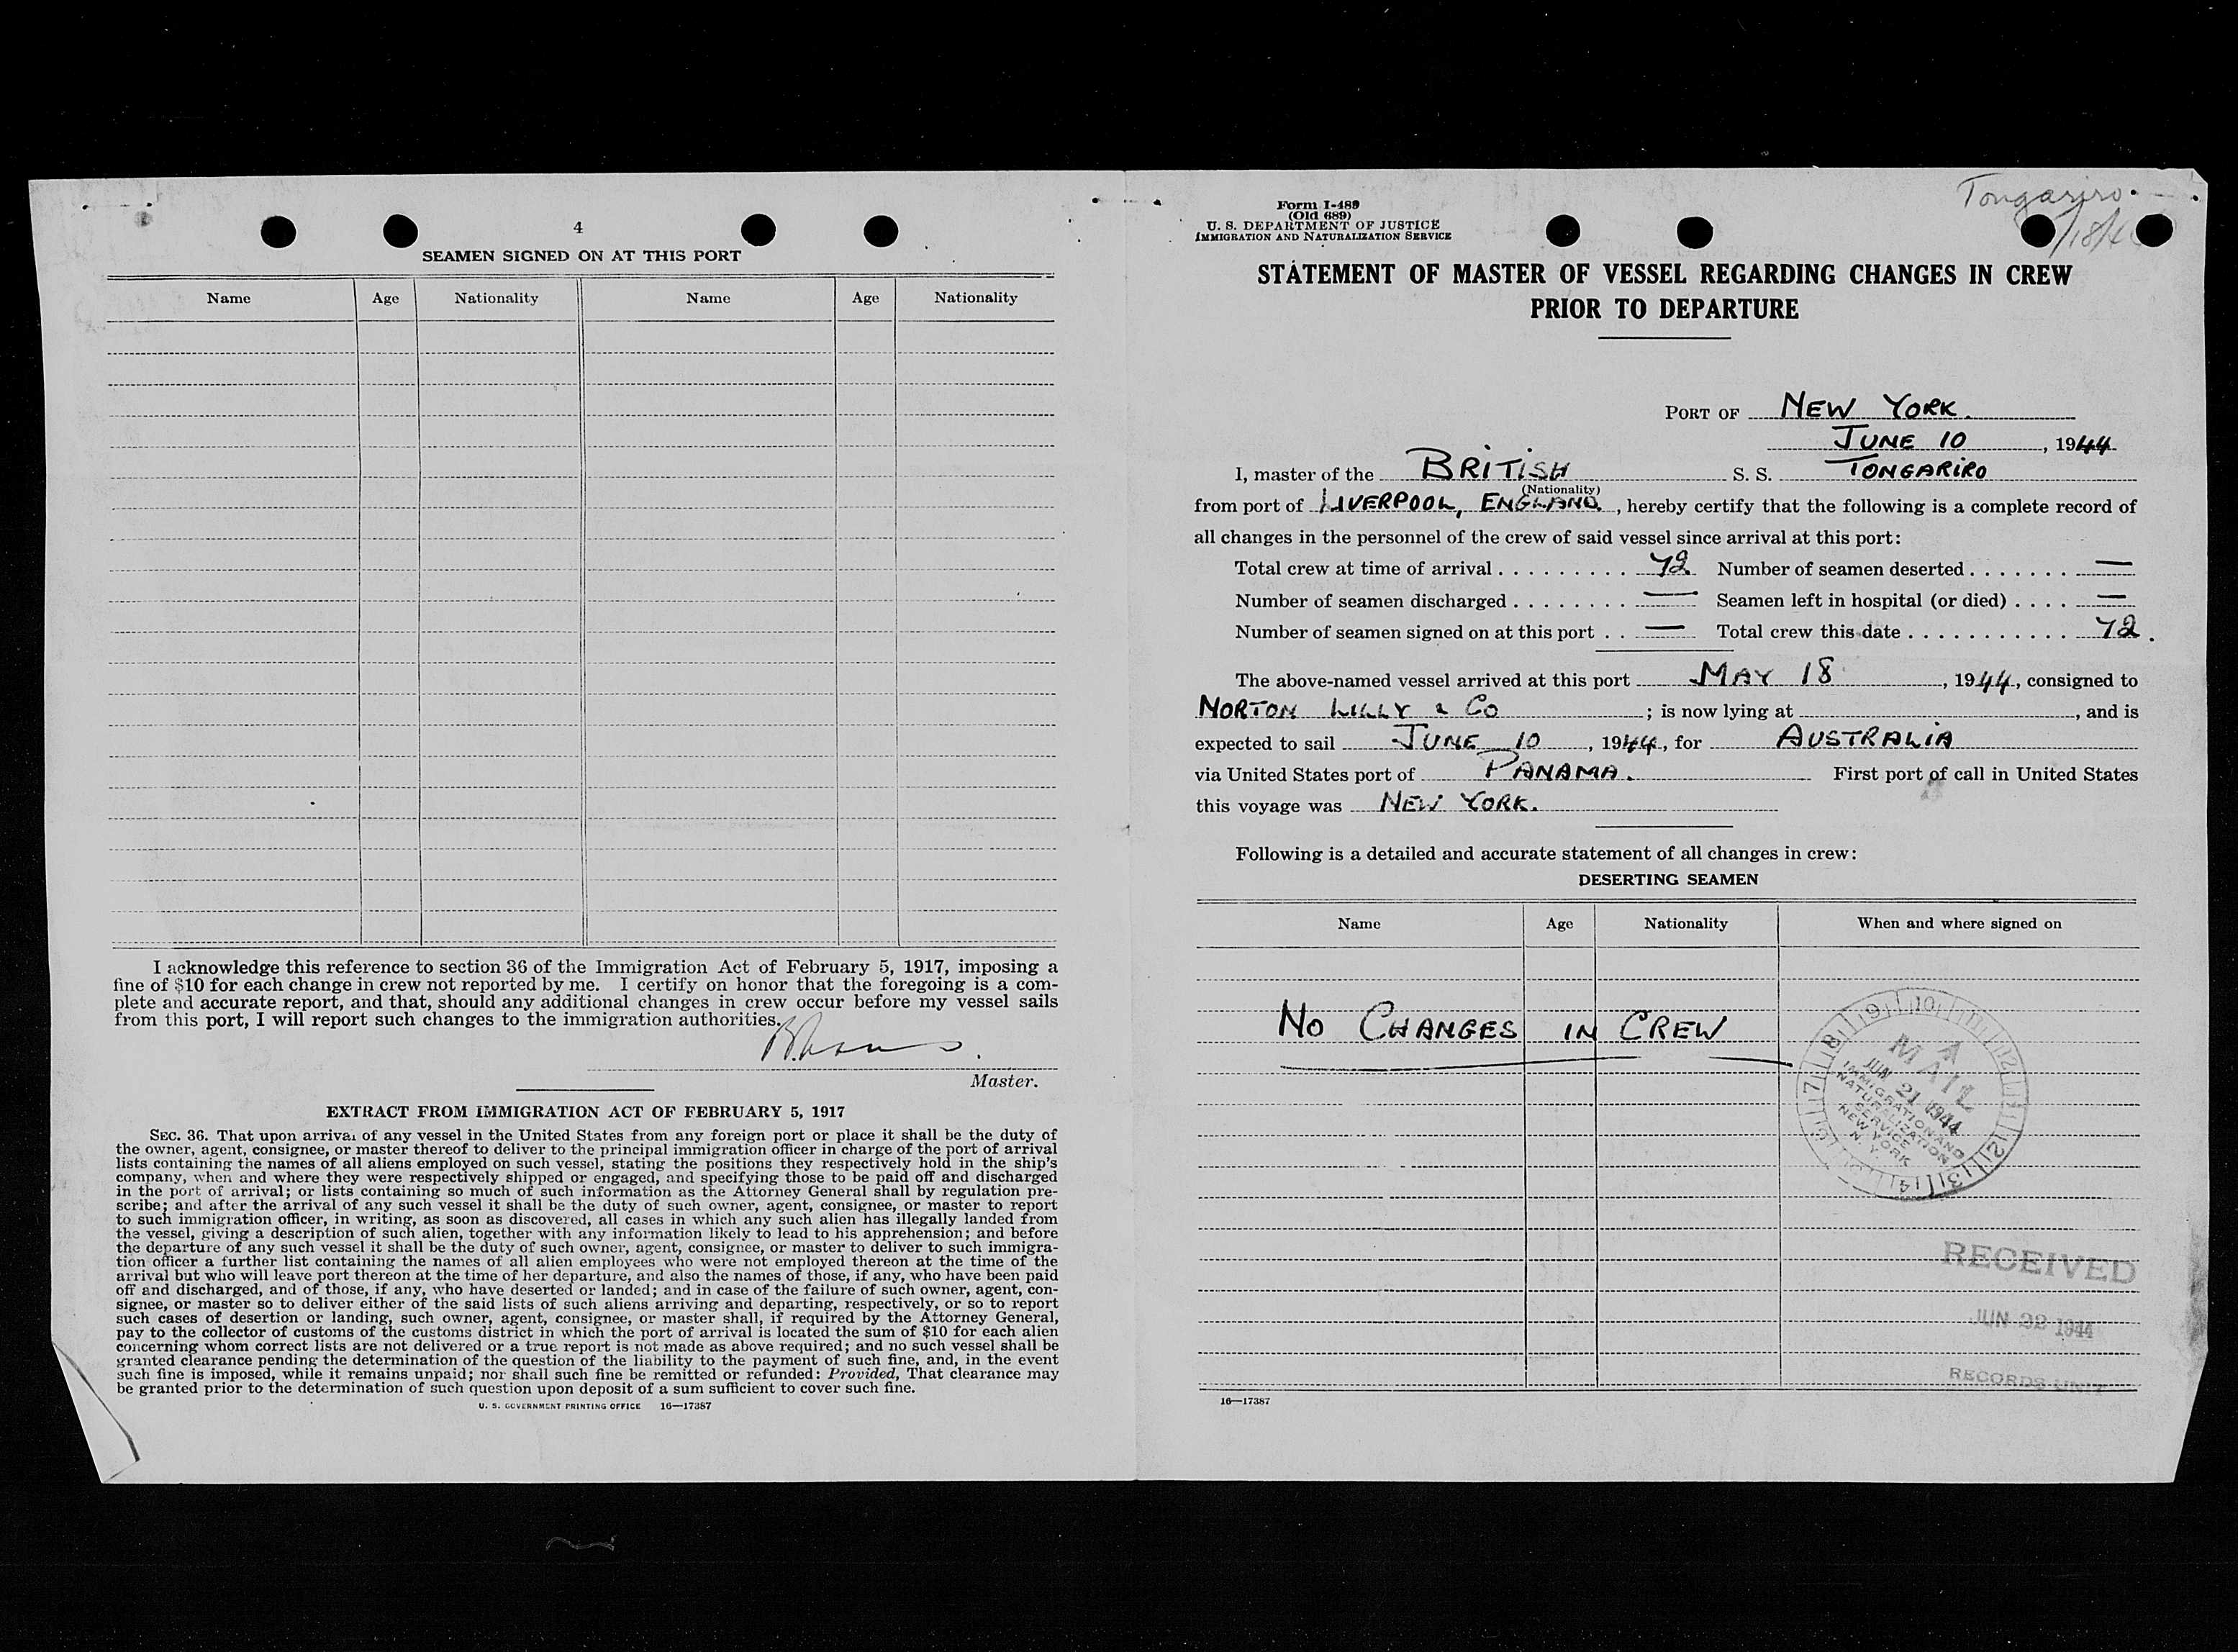 4
SEAMEN SIGNED ON AT THIS PORT
Name Age Nationality Name Age Nationality
I acknowledge this reference to section 36 of the Immigration Act of February 5, 1917, imposing a
fine of $10 for each change in crew not reported by me. I certify on honor that the foregoing is a com-
plete and accurate report, and that, should any additional changes in crew occur before my vessel sails
from this port, I will report such changes to the immigration authorities.
Master.
EXTRACT FROM IMMIGRATION ACT OF FEBRUARY 5, 1917
SEC. 36. That upon arrival of any vessel in the United States from any foreign port or place it shall be the duty of
the owner, agent, consignee, or master thereof to deliver to the principal immigration officer in charge of the port of arrival
lists containing the names of all aliens employed on such vessel, stating the positions they respectively hold in the ship's
company, when and where they were respectively shipped or engaged, and specifying those to be paid off and discharged
in the port of arrival; or lists containing so much of such information as the Attorney General shall by regulation pre-
scribe; and after the arrival of any such vessel it shall be the duty of such owner, agent, consignee, or master to report
to such immigration officer, in writing, as soon as discovered, all cases in which any such alien has illegally landed from
the vessel, giving a description of such alien, together with any information likely to lead to his apprehension; and before
the departure of any such vessel it shall be the duty of such owner, agent, consignee, or master to deliver to such immigra-
tion officer a further list containing the names of all alien employees who were not employed thereon at the time of the
arrival but who will leave port thereon at the time of her departure, and also the names of those, if any, who have been paid
off and discharged, and of those, if any, who have deserted or landed; and in case of the failure of such owner, agent, con-
signee, or master so to deliver either of the said lists of such aliens arriving and departing, respectively, or so to report
such cases of desertion or landing, such owner, agent, consignee, or master shall, if required by the Attorney General,
pay to the collector of customs of the customs district in which the port of arrival is located the sum of $10 for each alien
concerning whom correct lists are not delivered or a true report is not made as above required; and no such vessel shall be
granted clearance pending the determination of the question of the liability to the payment of such fine, and, in the event
such fine is imposed, while it remains unpaid; nor shall such fine be remitted or refunded: Provided, That clearance may
be granted prior to the determination of such question upon deposit of a sum sufficient to cover such fine.
U. S. GOVERNMENT PRINTING OFFICE 16—17387
Tongariro
Form I-489
(Old 689)
U. S. DEPARTMENT OF JUSTICE
IMMIGRATION AND NATURALIZATION SERVICE
STATEMENT OF MASTER OF VESSEL REGARDING CHANGES IN CREW
PRIOR TO DEPARTURE
PORT OF NEW YORK.
JUNE 10, 1944
I, master of the BRITISH S. S. TONGARIRO
(Nationality)
from port of LIVERPOOL, ENGLAND, hereby certify that the following is a complete record of
all changes in the personnel of the crew of said vessel since arrival at this port:
Total crew at time of arrival . . . . . . . . . 72 Number of seamen deserted . . . . . . . —
Number of seamen discharged . . . . . . . . — Seamen left in hospital (or died) . . . . —
Number of seamen signed on at this port . . — Total crew this date . . . . . . . . . . . 72.
The above-named vessel arrived at this port MAY 18, 1944, consigned to
NORTON LILLY & CO; is now lying at , and is
expected to sail JUNE 10, 1944, for AUSTRALIA
via United States port of PANAMA. First port of call in United States
this voyage was NEW YORK.
Following is a detailed and accurate statement of all changes in crew:
DESERTING SEAMEN
Name Age Nationality When and where signed on
NO CHANGES IN CREW
9 10 11 12 1 2 3 4 5 6 7 8
A
MAIL
JUN 21 1944
IMMIGRATION AND
NATURALIZATION
SERVICE
NEW YORK
N. Y.
RECEIVED
JUN 22 1944
RECORDS UNIT
16—17387